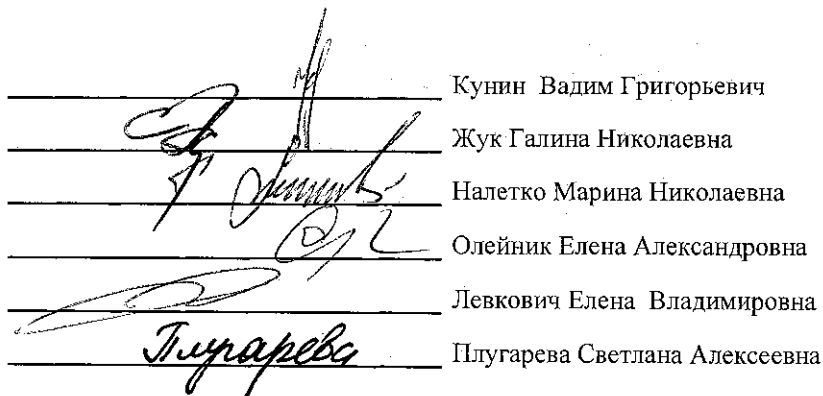 Кунин Вадим Григорьевич
Жук Галина Николаевна
Налетко Марина Николаевна
Олейник Елена Александровна
Левкович Елена Владимировна
Плугарева Плугарева Светлана Алексеевна